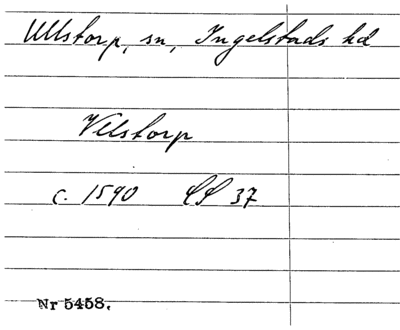 Ullstorp, sn, Ingelstads hd
Vllstorp
c. 1590 LL 37
Nr 5458.